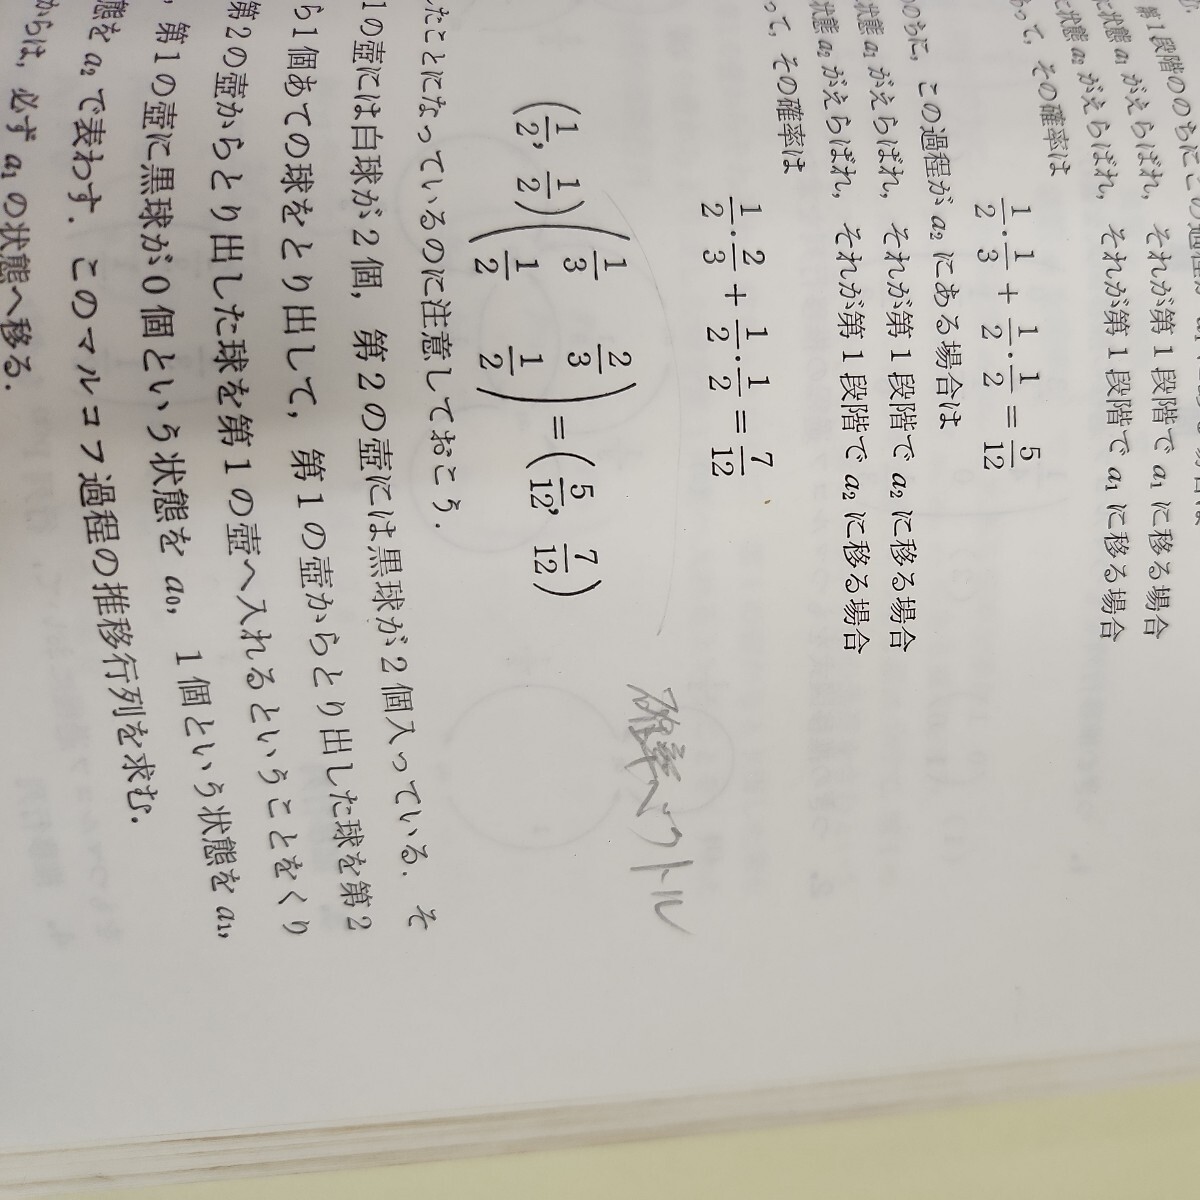 第1段階ののちにこの過程が
状態 a₁ がえらばれ, それが第1段階で a₁ に移る場合
状態 a₂ がえらばれ, それが第1段階で a₁ に移る場合
って, その確率は
1/2・1/3 + 1/2・1/2 = 5/12
のちに, この過程が a₂ にある場合は
状態 a₁ がえらばれ, それが第1段階で a₂ に移る場合
状態 a₂ がえらばれ, それが第1段階で a₂ に移る場合
って, その確率は
1/2・2/3 + 1/2・1/2 = 7/12
確率ベクトル
(1/2, 1/2)(1/3 2/3
1/2 1/2) = (5/12, 7/12)
たことになっているのに注意しておこう.
1の壺には白球が2個, 第2の壺には黒球が2個入っている. そ
ら1個あての球をとり出して, 第1の壺からとり出した球を第2
第2の壺からとり出した球を第1の壺へ入れるということをくり
, 第1の壺に黒球が0個という状態を a₀, 1個という状態を a₁,
態を a₂ で表わす. このマルコフ過程の推移行列を求む.
からは, 必ず a₁ の状態へ移る.